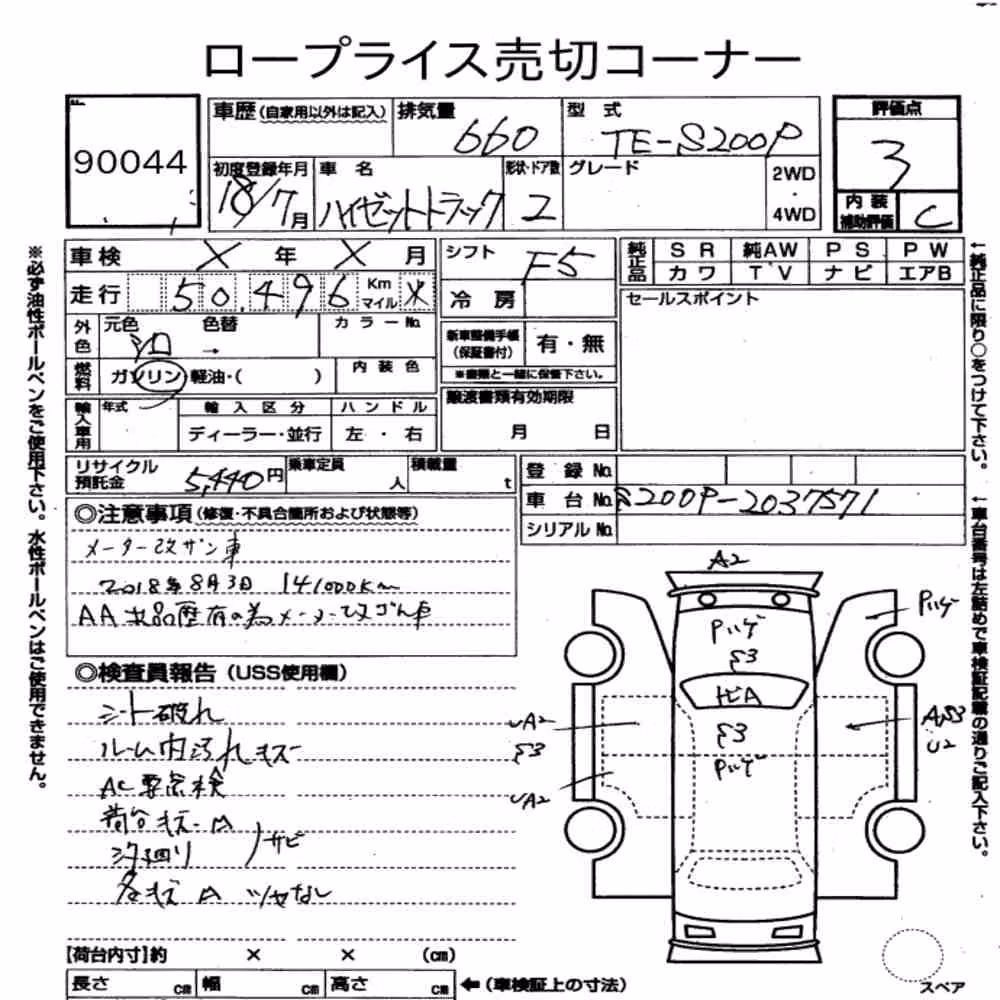 ロープライス売切コーナー
90044
車歴(自家用以外は記入)
排気量
660
型 式
TE-S200P
評価点
3
初度登録年月
18/7月
車 名
ハイゼットトラック
形状・ドア数
2
グレード
2WD
・
4WD
内 装
補助評価
C
車検 X 年 X 月
シフト
F5
純正品
SR 純AW PS PW
カワ TV ナビ エアB
走行 50,496 Km マイル *
冷 房
セールスポイント
外色
元色 シロ
色替 →
カラーNo.
新車整備手帳
(保証書付)
有・無
※書類と一緒に保管下さい。
燃料
ガソリン・軽油・( )
内 装 色
譲渡書類有効期限
月 日
輸入車用
年式
輸 入 区 分
ハ ン ド ル
ディーラー・並行
左 ・ 右
リサイクル
預託金
5,440円
乗車定員
人
積載量
t
登 録 No.
車 台 No. S200P-2037571
シリアル No.
◎注意事項(修復・不具合箇所および状態等)
メーター改ザン車
2018年8月3日 141000Km
AA出品歴有の為メーター改ざん車
◎検査員報告(USS使用欄)
シート破れ
ルーム内汚れキズ
AC要点検
荷台キズ凹
シタ廻り
サビ
各キズ凹 ツヤなし
A2
Pハゲ
Pハゲ
S3
トビA
S3
Pハゲ
UA2
S3
UA2
U2
【荷台内寸】約 × × (cm)
長さ cm 幅 cm 高さ cm ←(車検証上の寸法)
スペア
※必ず油性ボールペンをご使用下さい。水性ボールペンはご使用できません。
←純正品に限り○をつけて下さい。
←車台番号は左詰めで車検証記載の通りご記入下さい。